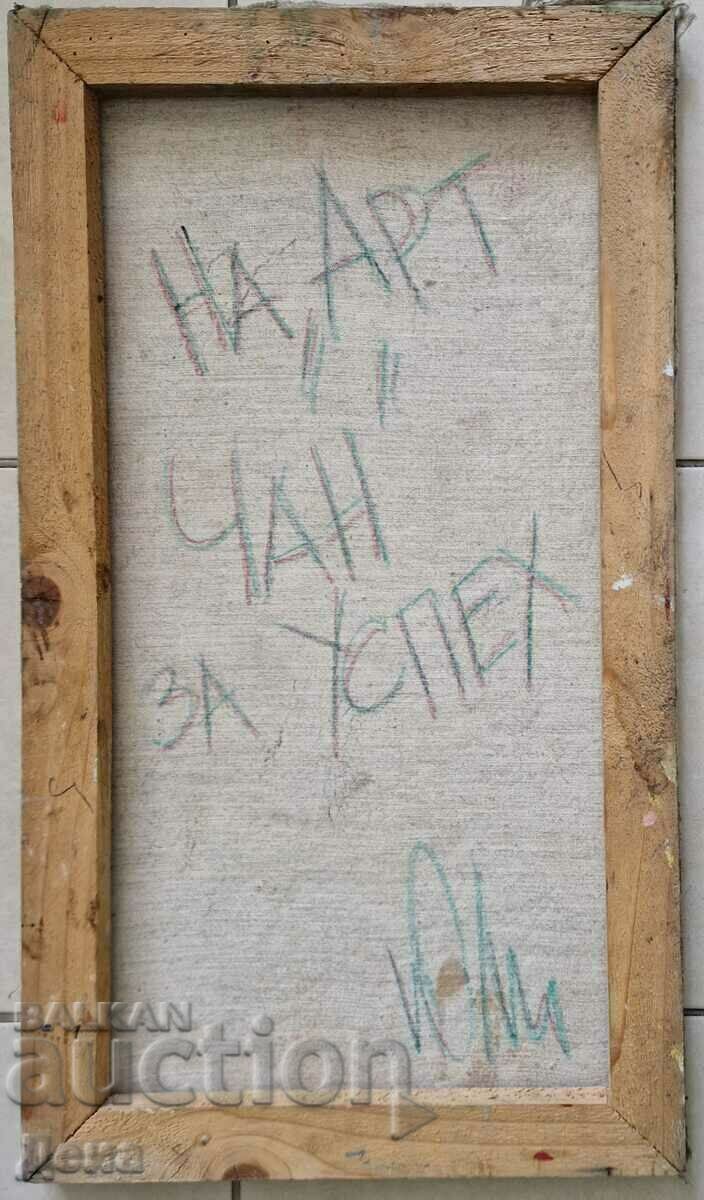 НА АРТ
" "
ЧАН
ЗА УСПЕХ
BALKAN
auction
Дека